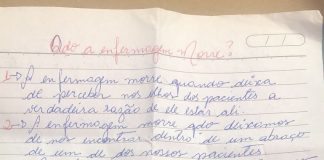 Qdo a enfermagem Morre?
1-> A enfermagem morre quando deixa
de perceber nos olhos dos pacientes a
verdadeira razão de ele estás ali.
2-> A enfermagem morre qdo deixamos
de nos encontrar dentro de um abraço
de um de dos nossos pacientes